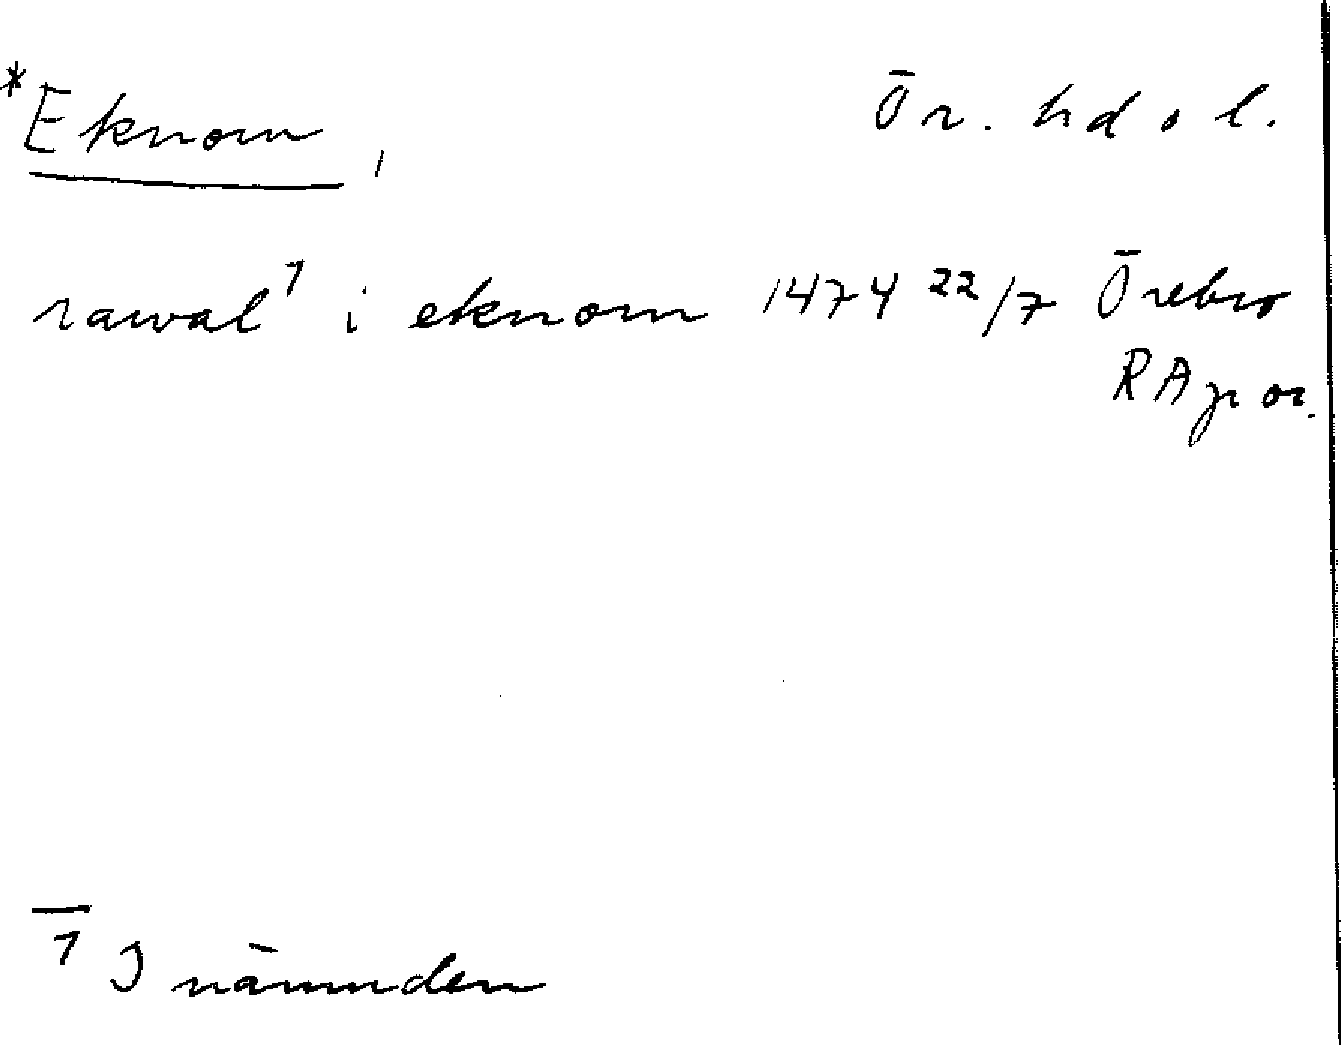 *Eknom, Ör. hd o l.
rawal¹ i eknom 1474 22/7 Örebro
RAp or.
¹ I nämnden